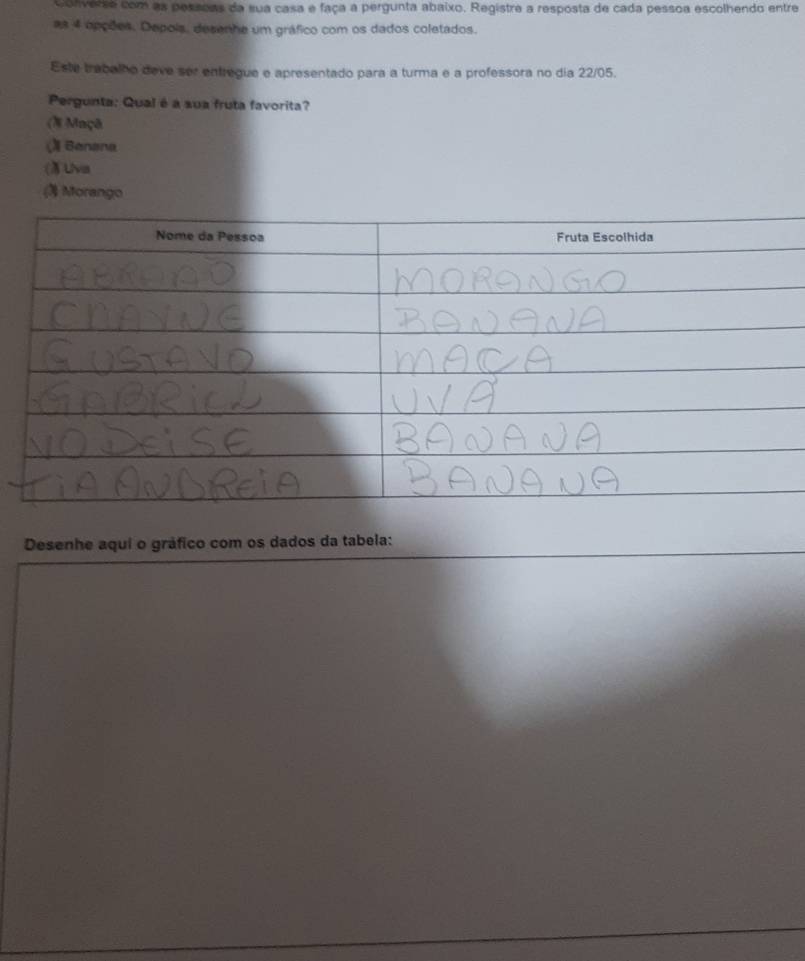 Converse com as pessoas da sua casa e faça a pergunta abaixo. Registre a resposta de cada pessoa escolhendo entre
as 4 opções. Depois, desenhe um gráfico com os dados coletados.
Este trabalho deve ser entregue e apresentado para a turma e a professora no dia 22/05.
Pergunta: Qual é a sua fruta favorita?
(X) Maçã
(X) Banana
(X) Uva
(X) Morango
Nome da Pessoa Fruta Escolhida
MORANGO
BANANA
GUSTAVO MACA
GABRIEL UVA
VO DEISE BANANA
TIA ANDREIA BANANA
Desenhe aqui o gráfico com os dados da tabela: